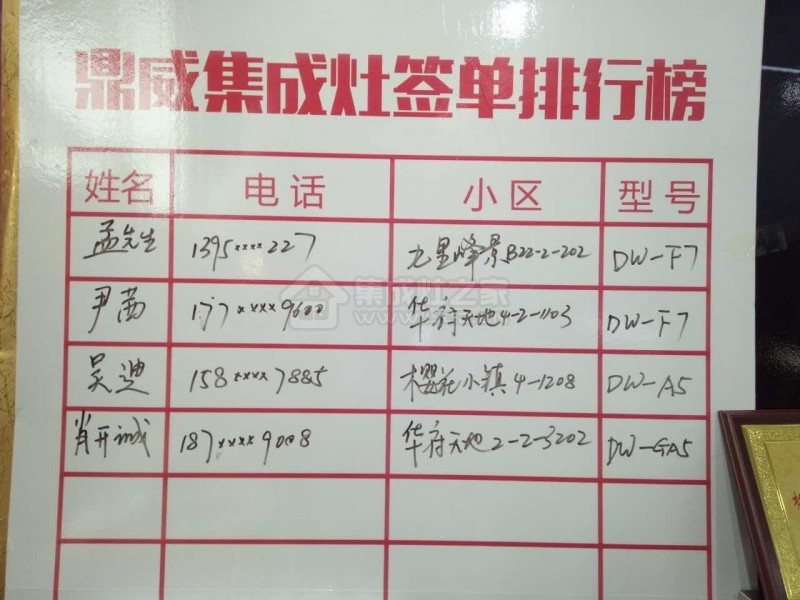 鼎威集成灶签单排行榜
姓名 电话 小区 型号
孟先生 1395****227 九里峰景B22-2-202 DW-F7
尹茜 177****9600 华府天地4-2-1103 DW-F7
吴迪 158****7885 樱花小镇4-1208 DW-A5
肖开诚 187****9008 华府天地2-2-3202 DW-GA5
集成灶之家